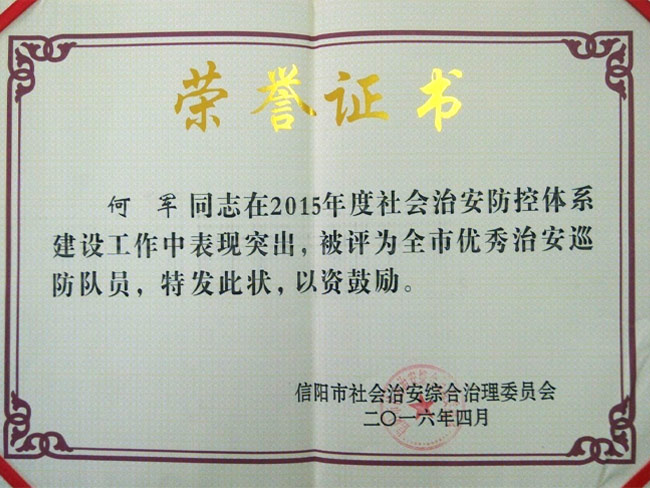 荣誉证书
何军同志在2015年度社会治安防控体系
建设工作中表现突出，被评为全市优秀治安巡
防队员，特发此状，以资鼓励。
信阳市社会治安综合治理委员会
二〇一六年四月